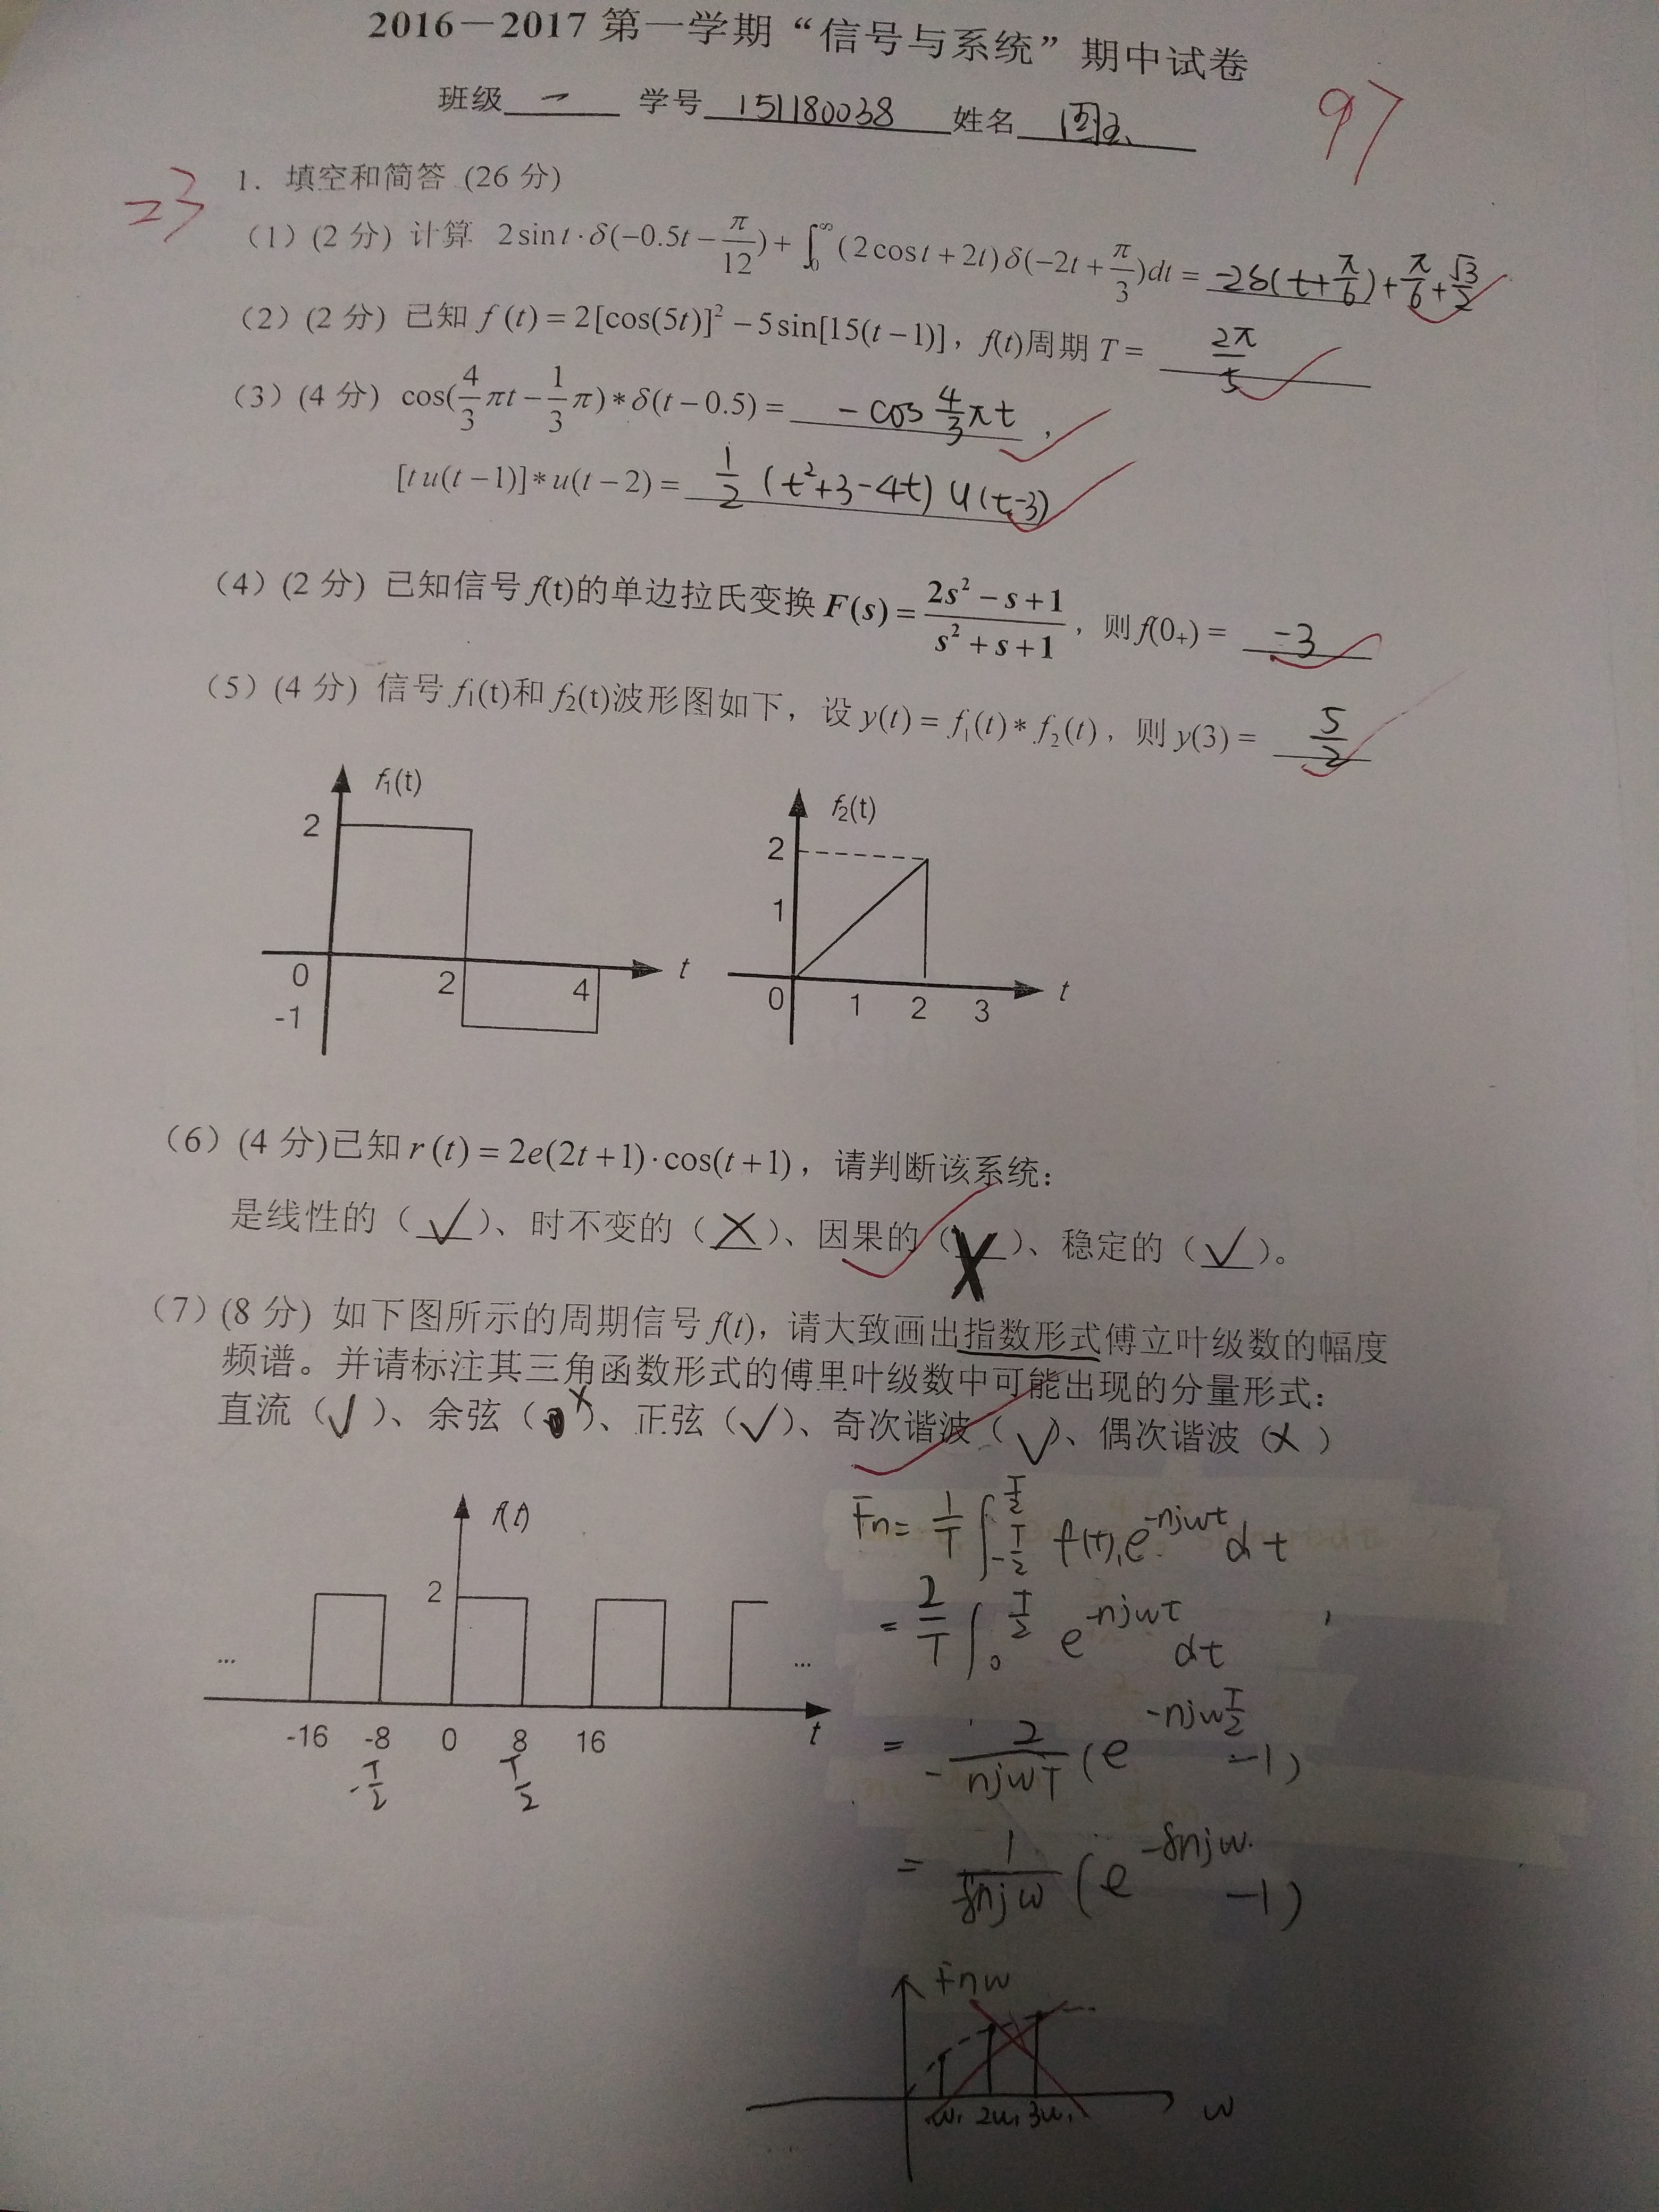 2016－2017 第一学期“信号与系统”期中试卷
班级 一 学号 151180038 姓名
97
23
1. 填空和简答 (26 分)
（1）(2 分) 计算 2sin t·δ(−0.5t−π/12)+∫₀^∞(2cos t+2t)δ(−2t+π/3)dt= -2δ(t+π/6)+π/6+√3/2
（2）(2 分) 已知 f(t)=2[cos(5t)]²−5sin[15(t−1)]，f(t)周期 T= 2π/5
（3）(4 分) cos(4/3πt−1/3π)*δ(t−0.5)= -cos 4/3πt ，
[tu(t−1)]*u(t−2)= 1/2 (t²+3-4t) u(t-3)
（4）(2 分) 已知信号 f(t)的单边拉氏变换 F(s)=(2s²−s+1)/(s²+s+1)，则 f(0₊)= -3
（5）(4 分) 信号 f₁(t)和 f₂(t)波形图如下，设 y(t)=f₁(t)*f₂(t)，则 y(3)= 5/2
f₁(t)
2
0 2 4 t
-1
f₂(t)
2
1
0 1 2 3 t
（6）(4 分)已知 r(t)=2e(2t+1)·cos(t+1)，请判断该系统：
是线性的（✓）、时不变的（×）、因果的（×）、稳定的（✓）。
（7）(8 分) 如下图所示的周期信号 f(t)，请大致画出指数形式傅立叶级数的幅度
频谱。并请标注其三角函数形式的傅里叶级数中可能出现的分量形式：
直流（✓）、余弦（×）、正弦（✓）、奇次谐波（✓）、偶次谐波（×）
f(t)
2
... ...
-16 -8 0 8 16 t
-T/2 T/2
Fn= 1/T ∫_{-T/2}^{T/2} f(t)e^{-njwt}dt
= 2/T ∫₀^{T/2} e^{-njwt} dt
= 2/-njwT (e^{-njwT/2} -1)
= 1/8njw (e^{-8njw} -1)
Fnw
w₁ 2w₁ 3w₁ w